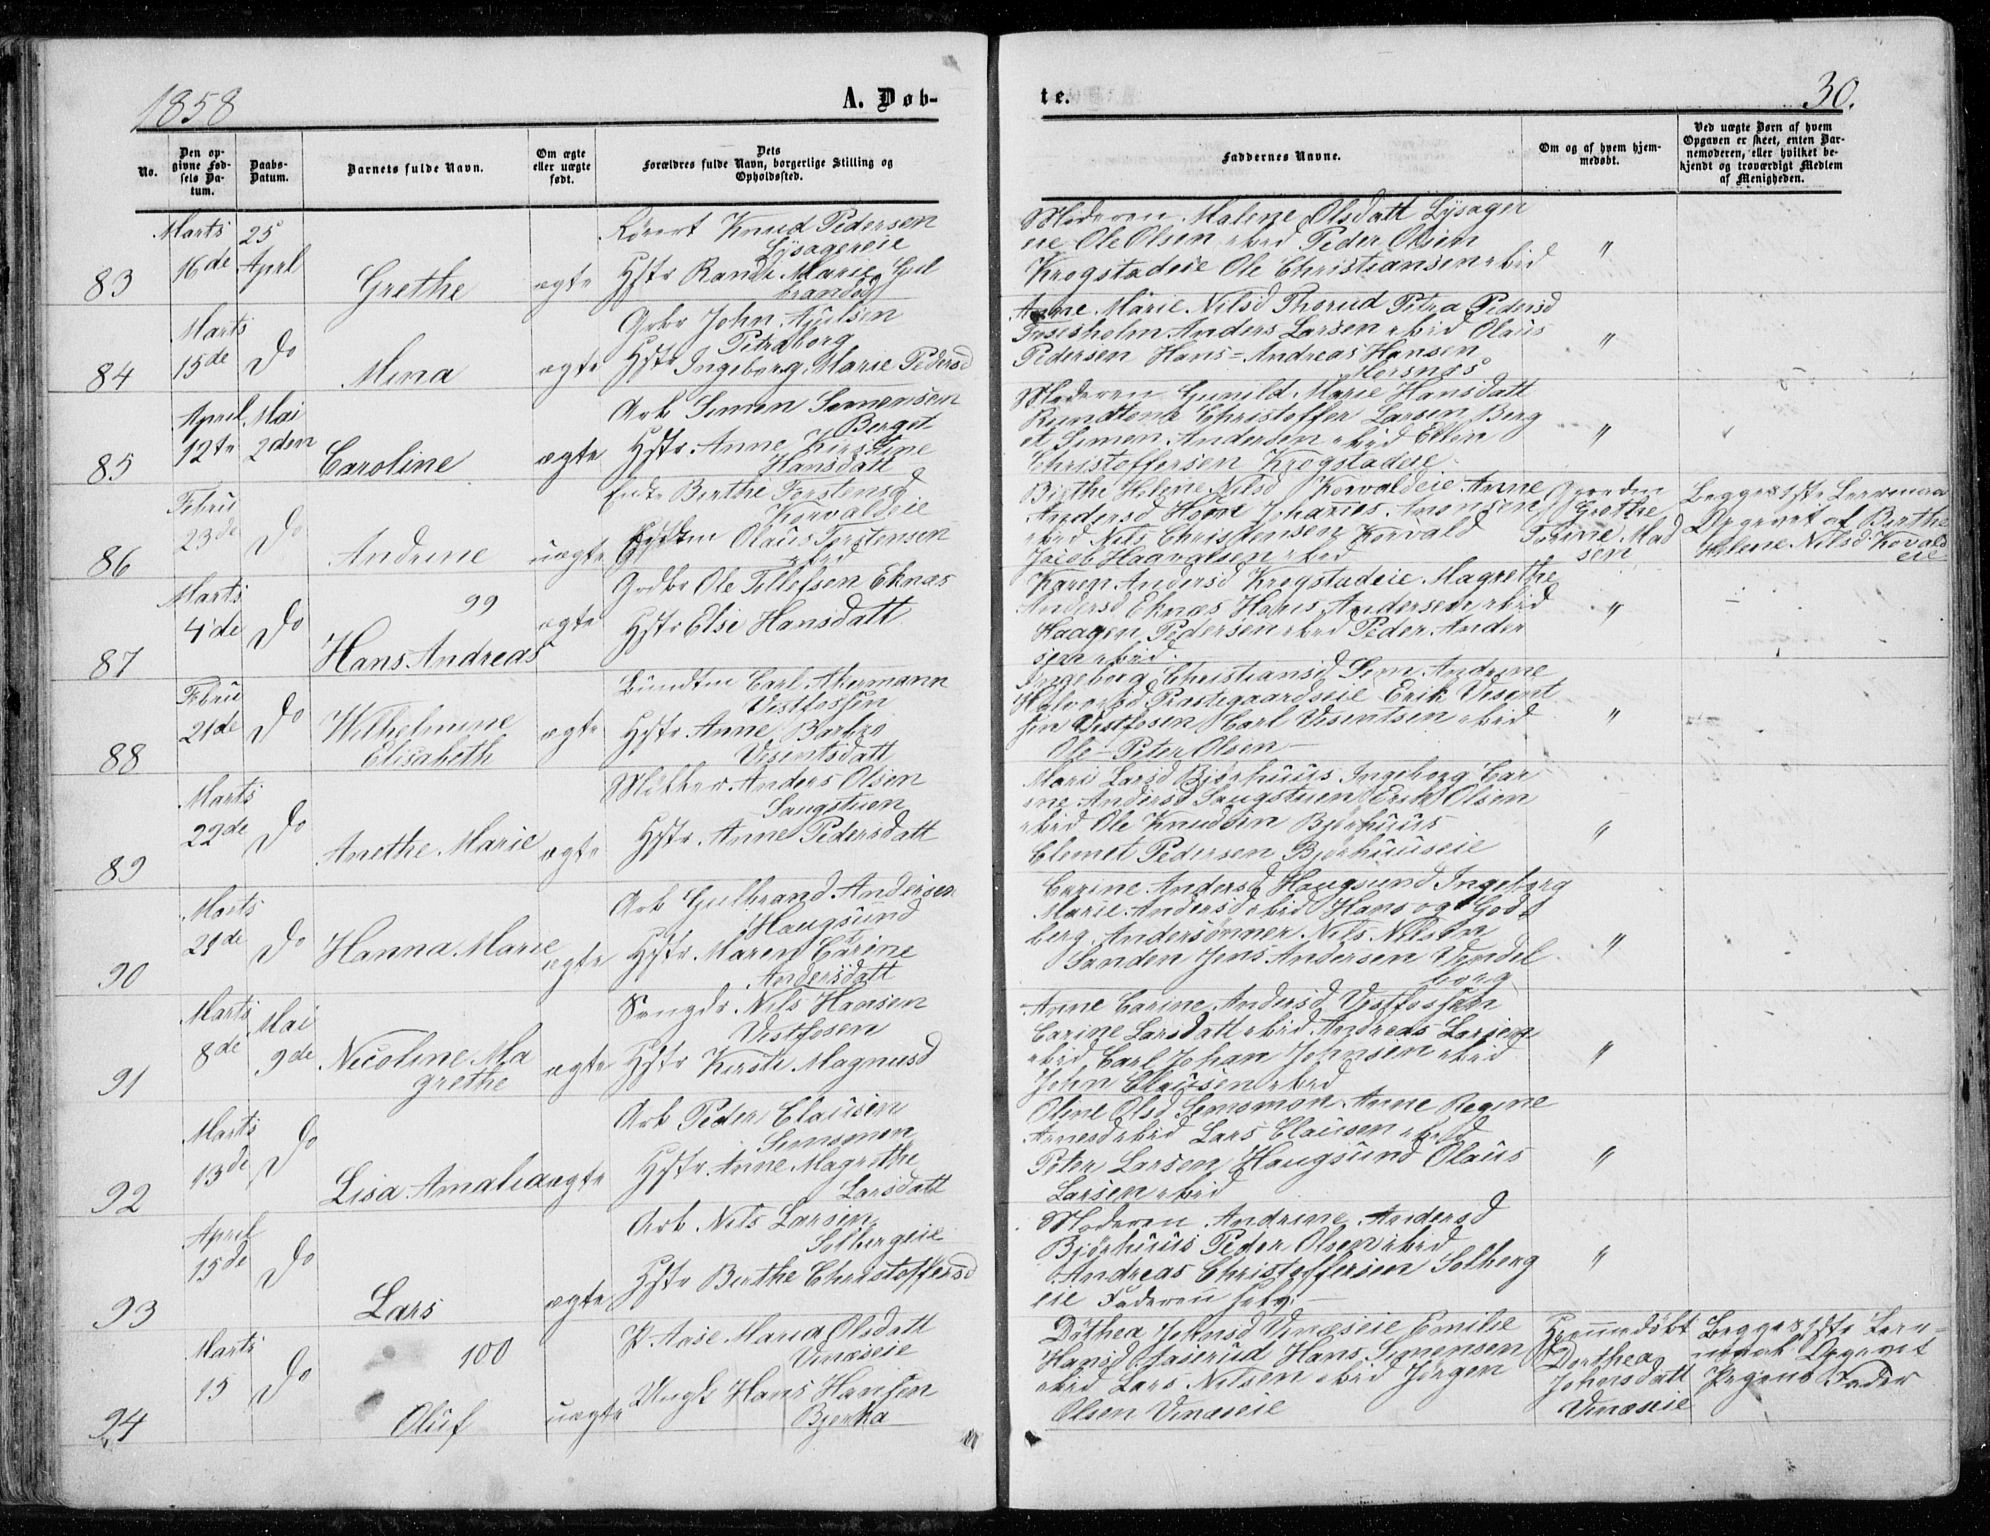 1858
A. Døb-
te.
30.
No.
Den op-
givne Fød-
sels Da-
tum.
Daabs-
Datum.
Barnets fulde Navn.
Om ægte
eller uægte
født.
Dets
Forældres fulde Navn, borgerlige Stilling og
Opholdssted.
Faddernes Navne.
Om og af hvem hjem-
medøbt.
Ved uægte Børn af hvem
Opgaven er skeet, enten Bar-
nemoderen, eller hvilket be-
kjendt og troværdigt Medlem
af Menigheden.
83
Marts
16de
25
Aprl
Grethe
ægte
Knud Pedersen
Lysagereie
Hstr Randi Marie Gul
brandsd
Moderen Malene Olsdatt Lysager
eie Ole Olsen ibid Peder Olsen
Krogstadeie Ole Christiansen ibid
"
84
Marts
15de
Do
Mina
ægte
Grbr John
Petraborg
Hstr Ingeborg Marie Pedersd
Anne Marie Nilsd Thorud Petra Pedersd
Fossesholm Anders Larsen ibid Olaus
Pedersen Hans=Andreas Hansen
Horsnæs
"
85
April
12te
Mai
2den
Caroline
ægte
Arb Simen Simensen
Berget
Hstr Anne Kirstine
Hansdatt
Moderen Gunild Marie Hansdatt
Christoffer Larsen Berg
et Simen Andersen ibid Ellen
Christoffersen Krogstadeie
"
86
Febru
23de
Do
Andrine
uægte
Enke Birthe Torstensd
Korvaldeie
Olaus Torstensen
ibid
Birthe Helene Nilsd Korvaldeie Anne
Andersd Johanes Arensen
ibid Nils Christensen Korvald
Jacob Haavalsen ibid
Grethe
Torine Mad
sen
Begges 1ste Leiermaal
Opgevet af Birthe
Helene Nilsd Korvald
eie
87
Marts
4de
Do
99
Hans Andreas
ægte
Gdbr Ole Tollefsen Eknæs
Hstr Else Hansdatt
Karen Andersd Krogstadeie Magrethe
Andersd Eknæs Hans Andersen ibid
Haagen Pedersen ibid Peder Ander
sen ibid.
"
88
Febru
21de
Do
Wilhelmine
Elisabeth
ægte
Bundtm Carl Akermann
Vestfossen
Hstr Anne Barbro
Vesentsdatt
Ingeborg Christiansd Sem Andrine
Halvorsd Præstegaardseie Erik Vesent
sen Vestfosen Carl Vesentsen ibid
Ole Peter Olsen
"
89
Marts
22de
Do
Anethe Marie
ægte
Møller Anders Olsen
Saugstuen
Hstr Anne Pedersdatt
Mari Larsd Bjørhuus Ingeborg Car
ine Andersd Saugstuen Erik Olsen
ibid Ole Knudsen Bjørhuus
Clemet Pedersen Bjørhuuseie
"
90
Marts
21de
Do
Hanna Marie
ægte
Arb Gulbrand Andersen
Haugsund
Hstr Maren Carine
Andersdatt
Carine Andersd Haugsund Ingeborg
Marie Andersd ibid Hans og Gud
berg Andersönner Nils Nilsen
Sanden Jens Andersen Vendel
borg
"
91
Marts
8de
Mai
9de
Nicoline Ma
grethe
ægte
Nils Hansen
Vestfosen
Hstr Kirsti Magnusd
Anne Carine Andersd Vestfossen
Carine Larsdatt ibid Andreas Larsen
ibid Carl Johan Johnsen ibid
John Clausen ibid
"
92
Marts
13de
Do
Lisa Amalia
ægte
Arb Peder Clausen
Semsmoen
Hstr Anne Magrethe
Larsdatt
Oline Olsd Semsmoen Anne Regine
Arnesd ibid Lars Clausen ibid
Peter Larsen Haugsund Olaus
Larsen ibid
"
93
April
15de
Do
Lars
ægte
Arb Nils Larsen
Solbergeie
Hstr Birthe Christoffersd
Moderen Andrine Andersd
Bjørhuus Peder Olsen ibid
Andreas Christoffersen Solberg
eie Faderen selv.
"
94
Marts
15
Do
100
Oluf
uægte
P. Aase Maria Olsdatt
Vinæseie
Ungk Hans Hansen
Bjerka
Dothea Johnsd Vinæseie Emilie
Hansd Hans Simensen
ibid Lars Nilsen ibid Jørgen
Olsen Vinæseie
Hjemmedøbt
Dorthea
Johnsdatt
Vinæseie
Begges 1ste Leier-
maal Opgevet
Pigens Fader